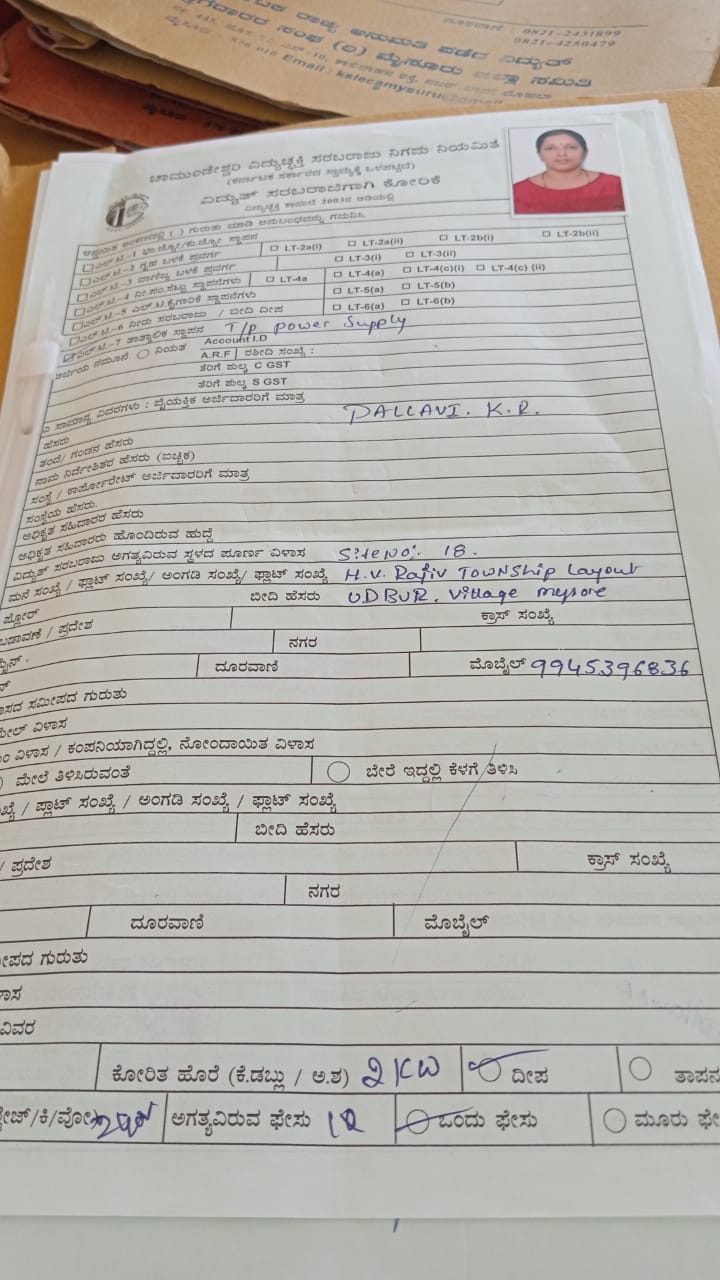 0821-2431899
0821-4250479
ರಾಜ್ಯ ಅನುಮತಿ ಪಡೆದ ವಿದ್ಯುತ್
ಸಂಘ (ರಿ) ಮೈಸೂರು ಜಿಲ್ಲಾ ಸಮಿತಿ
570 010 Email : kslecamysuru@gmail
ಚಾಮುಂಡೇಶ್ವರಿ ವಿದ್ಯುಚ್ಛಕ್ತಿ ಸರಬರಾಜು ನಿಗಮ ನಿಯಮಿತ
(ಕರ್ನಾಟಕ ಸರ್ಕಾರದ ಸ್ವಾಮ್ಯಕ್ಕೆ ಒಳಪಟ್ಟಿದೆ)
ವಿದ್ಯುತ್ ಸರಬರಾಜಿಗಾಗಿ ಕೋರಿಕೆ
ವಿದ್ಯುಚ್ಛಕ್ತಿ ಕಾಯಿದೆ 2003ರ ಅಡಿಯಲ್ಲಿ
ಗುರುತು ಮಾಡಿ ಅನುಬಂಧವನ್ನು ಗಮನಿಸಿ
ಎಲ್.ಟಿ.-1 ಭಾ.ಜ್ಯೋ/ಕು.ಜ್ಯೋ ಸ್ಥಾಪನ LT-2a(i) LT-2a(ii) LT-2b(i) LT-2b(ii)
ಎಲ್.ಟಿ.-2 ಗೃಹ ಬಳಕೆ ಪ್ರವರ್ಗ LT-3(i) LT-3(ii)
ಎಲ್.ಟಿ.-3 ವಾಣಿಜ್ಯ ಬಳಕೆ ಪ್ರವರ್ಗ LT-4a LT-4(a) LT-4(c)(i) LT-4(c) (ii)
ಎಲ್.ಟಿ.-4 ನೀ.ಪಂ.ಸೆಟ್ಟು ಸ್ಥಾಪನೆಗಳು LT-5(a) LT-5(b)
ಎಲ್.ಟಿ.-5 ಎಲ್.ಟಿ.ಕೈಗಾರಿಕೆ ಸ್ಥಾಪನೆಗಳು LT-6(a) LT-6(b)
ಎಲ್.ಟಿ.-6 ನೀರು ಸರಬರಾಜು / ಬೀದಿ ದೀಪ
ಎಲ್.ಟಿ.-7 ತಾತ್ಕಾಲಿಕ ಸ್ಥಾಪನ T/p power Supply
ಅರ್ಜಿಯ ನಮೂನೆ ನಿಯತ Account I.D
A.R.F ರಶೀದಿ ಸಂಖ್ಯೆ :
ತೆರಿಗೆ ಶುಲ್ಕ C GST
ತೆರಿಗೆ ಶುಲ್ಕ S GST
ಎ ಸಾಮಾನ್ಯ ವಿವರಗಳು : ವೈಯಕ್ತಿಕ ಅರ್ಜಿದಾರರಿಗೆ ಮಾತ್ರ
ಹೆಸರು PALLAVI. K.R.
ತಂದೆ/ ಗಂಡನ ಹೆಸರು
ನಾಮ ನಿರ್ದೇಶಿತರ ಹೆಸರು (ಐಚ್ಛಿಕ)
ಸಂಸ್ಥೆ / ಕಾರ್ಪೋರೇಟ್ ಅರ್ಜಿದಾರರಿಗೆ ಮಾತ್ರ
ಸಂಸ್ಥೆಯ ಹೆಸರು.
ಅಧಿಕೃತ ಸಹಿದಾರರ ಹೆಸರು
ಅಧಿಕೃತ ಸಹಿದಾರರು ಹೊಂದಿರುವ ಹುದ್ದೆ
ವಿದ್ಯುತ್ ಸರಬರಾಜು ಅಗತ್ಯವಿರುವ ಸ್ಥಳದ ಪೂರ್ಣ ವಿಳಾಸ Site No: 18.
ಮನೆ ಸಂಖ್ಯೆ / ಫ್ಲಾಟ್ ಸಂಖ್ಯೆ/ ಅಂಗಡಿ ಸಂಖ್ಯೆ/ ಫ್ಲಾಟ್ ಸಂಖ್ಯೆ H.V. Rajiv TOWNShip Layout
ಫ್ಲೋರ್ ಬೀದಿ ಹೆಸರು UDBUR. Village mysore
ಬಡಾವಣೆ / ಪ್ರದೇಶ ಕ್ರಾಸ್ ಸಂಖ್ಯೆ
ನಗರ
ದೂರವಾಣಿ ಮೊಬೈಲ್ 9945396836
ಸಮೀಪದ ಗುರುತು
ಮೇಲ್ ವಿಳಾಸ
ವಿಳಾಸ / ಕಂಪನಿಯಾಗಿದ್ದಲ್ಲಿ, ನೋಂದಾಯಿತ ವಿಳಾಸ
ಮೇಲೆ ತಿಳಿಸಿರುವಂತೆ ಬೇರೆ ಇದ್ದಲ್ಲಿ ಕೆಳಗೆ ತಿಳಿಸಿ
/ ಪ್ಲಾಟ್ ಸಂಖ್ಯೆ / ಅಂಗಡಿ ಸಂಖ್ಯೆ / ಫ್ಲಾಟ್ ಸಂಖ್ಯೆ
ಬೀದಿ ಹೆಸರು
/ ಪ್ರದೇಶ ಕ್ರಾಸ್ ಸಂಖ್ಯೆ
ನಗರ
ದೂರವಾಣಿ ಮೊಬೈಲ್
ಗುರುತು
ವಿವರ
ಕೋರಿತ ಹೊರೆ (ಕೆ.ಡಬ್ಲು / ಅ.ಶ) 2 KW ದೀಪ ತಾಪನ
ಅಗತ್ಯವಿರುವ ಫೇಸು 1Ø ಒಂದು ಫೇಸು ಮೂರು ಫೇ